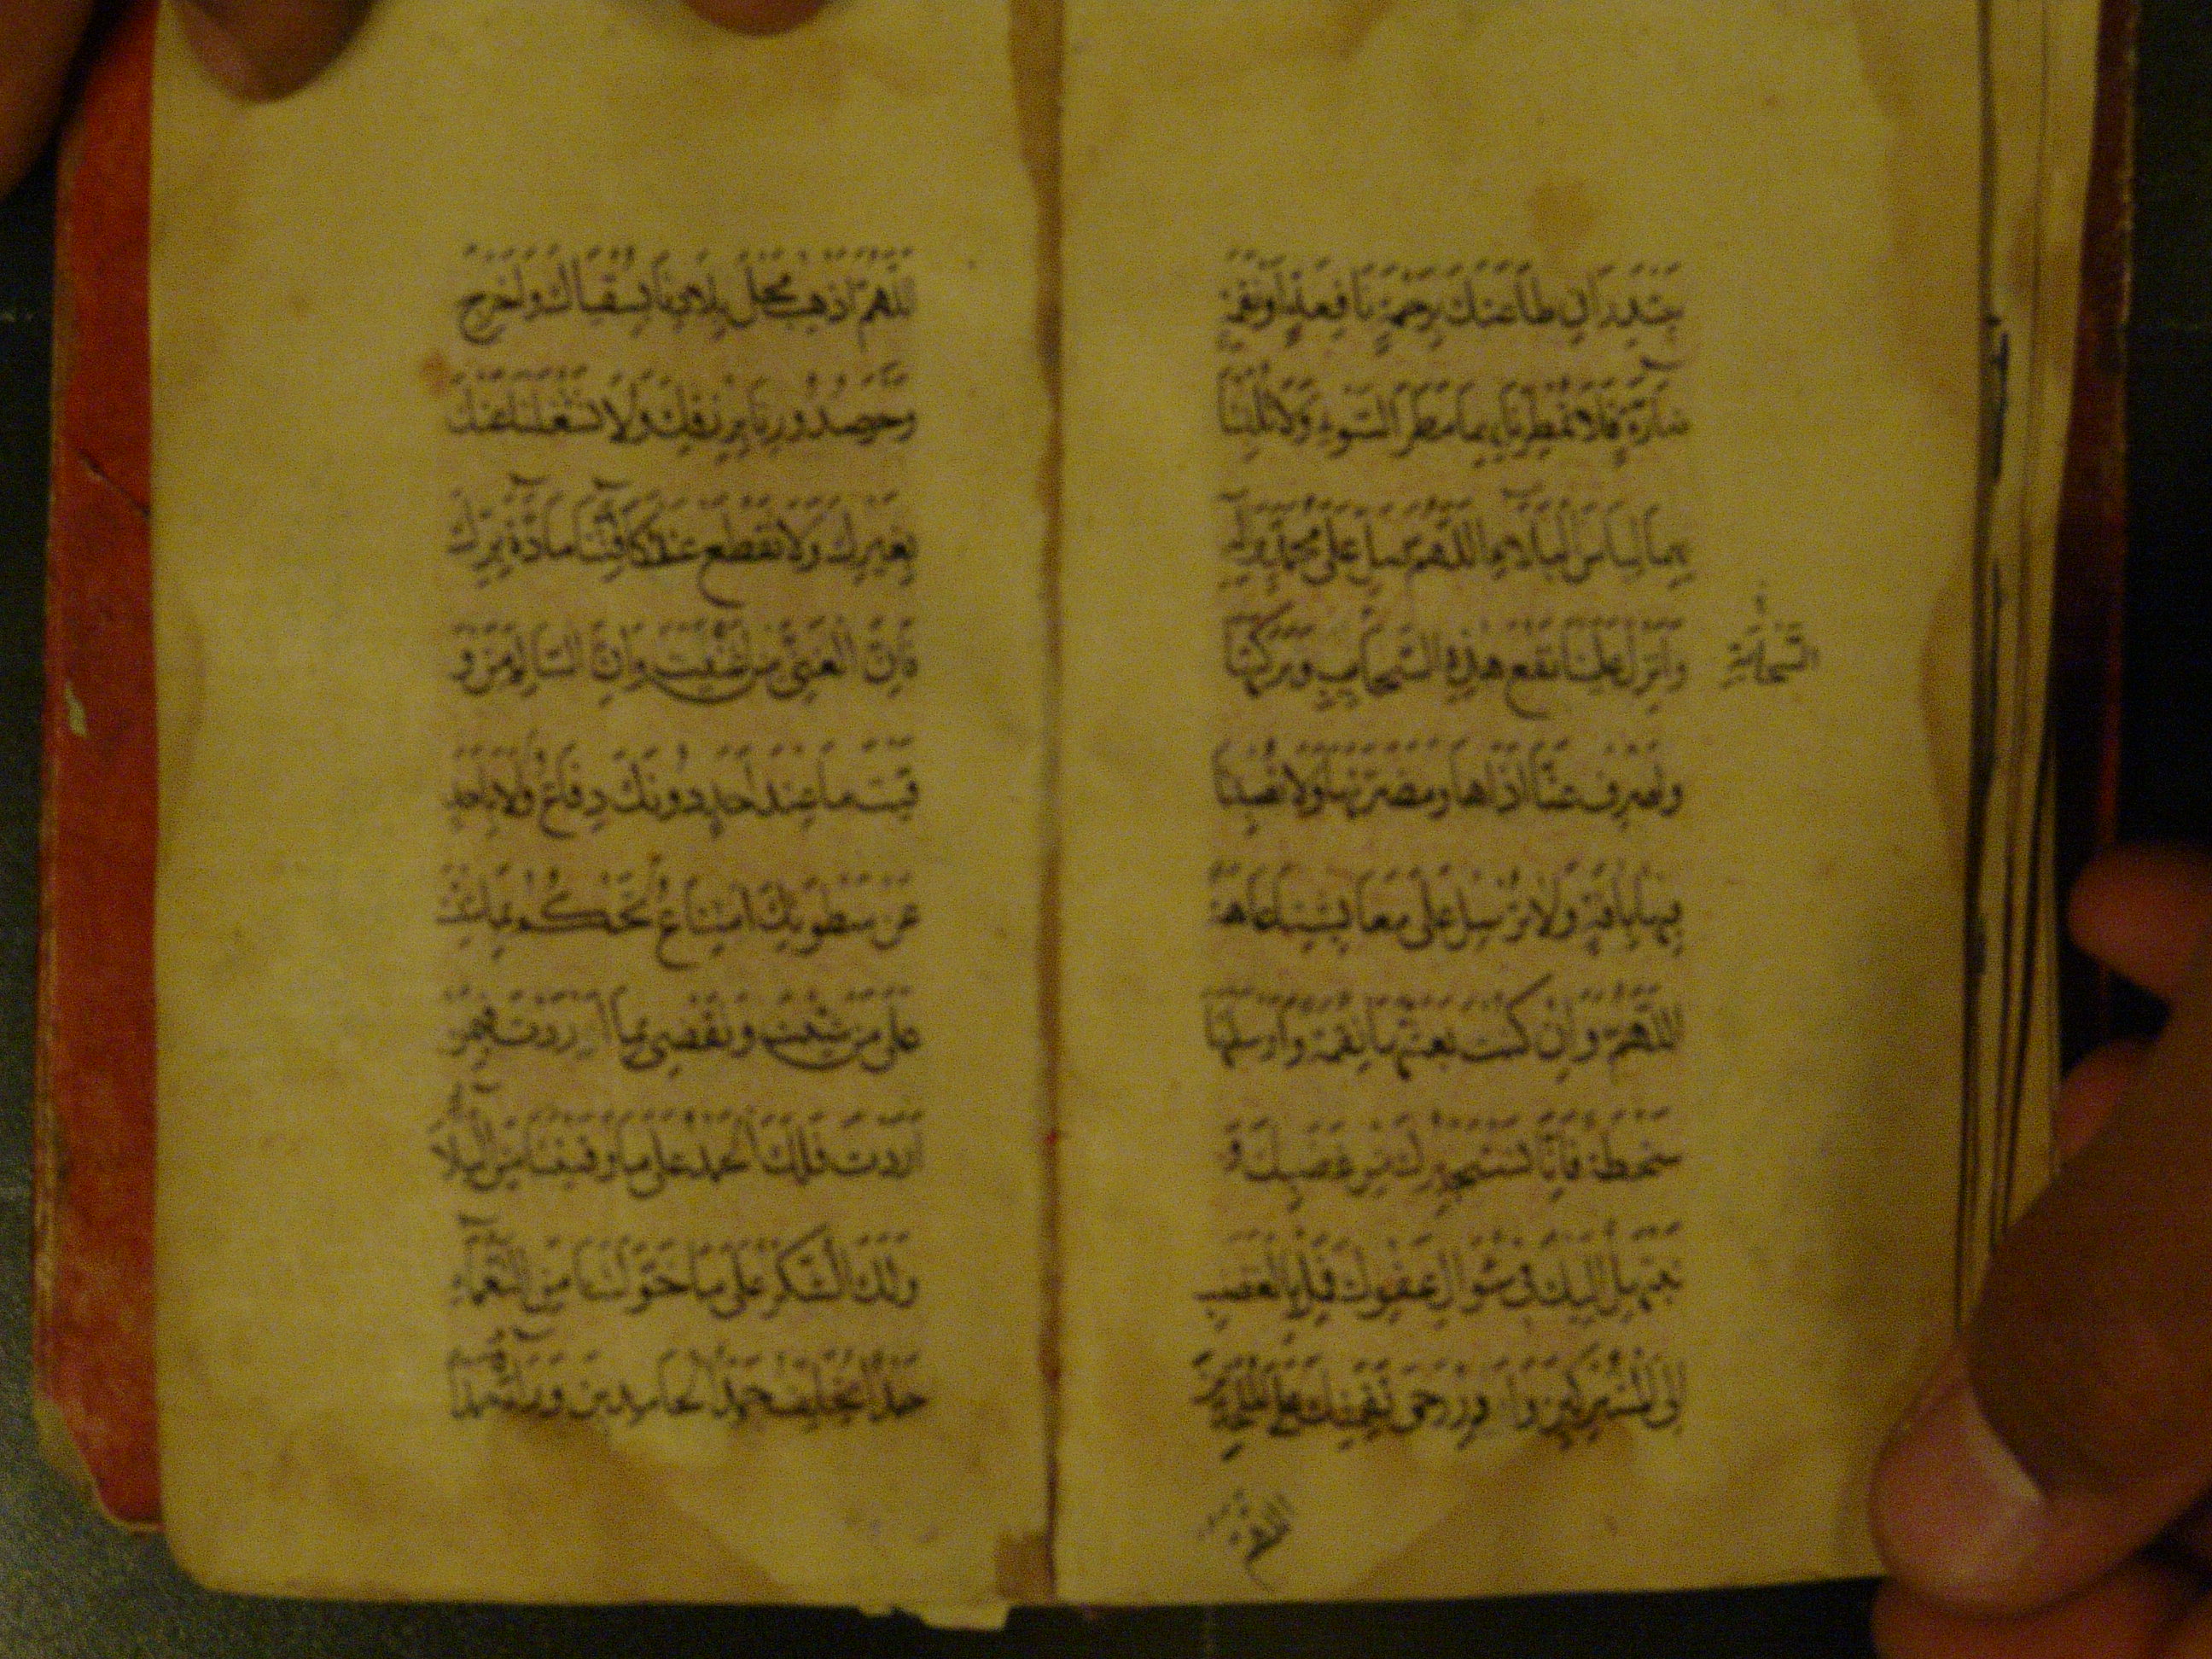 يبتدران طاعتك برحمة نافعة او نقمة
ضارة فلا تمطرنا بهما مطر السوء ولا تلبسنا
بهما لباس البلاء اللهم صل على محمد واله
وانزل علينا نفع هذه السحاب وبركتها
السحائب
واصرف عنا اذاها ومضرتها ولا تصبنا
فيها بافة ولا ترسل على معايشنا عاهة
اللهم وان كنت بعثتها نقمة وارسلتها
سخطة فانا نستجيرك من غضبك و
نبتهل اليك في سؤال عفوك فمل بالغضب
الى المشركين وادر رحى نقمتك على الملحدين
اللهم
اللهم اذهب محل بلادنا بسقياك واخرج
وحر صدورنا برزقك ولا تشغلنا عنك
بغيرك ولا تقطع عن كافتنا مادة برك
فان الغني من اغنيت وان السالم من و
قيت ما عند احد دونك دفاع ولا باحد
عن سطوتك امتناع تحكم بما شئت
على من شئت وتقضي بما اردت فيمن
اردت فلك الحمد على ما وقيتنا من البلاء
ولك الشكر على ما خولتنا من النعماء
حمدا يخلف حمد الحامدين وراءه حمدا